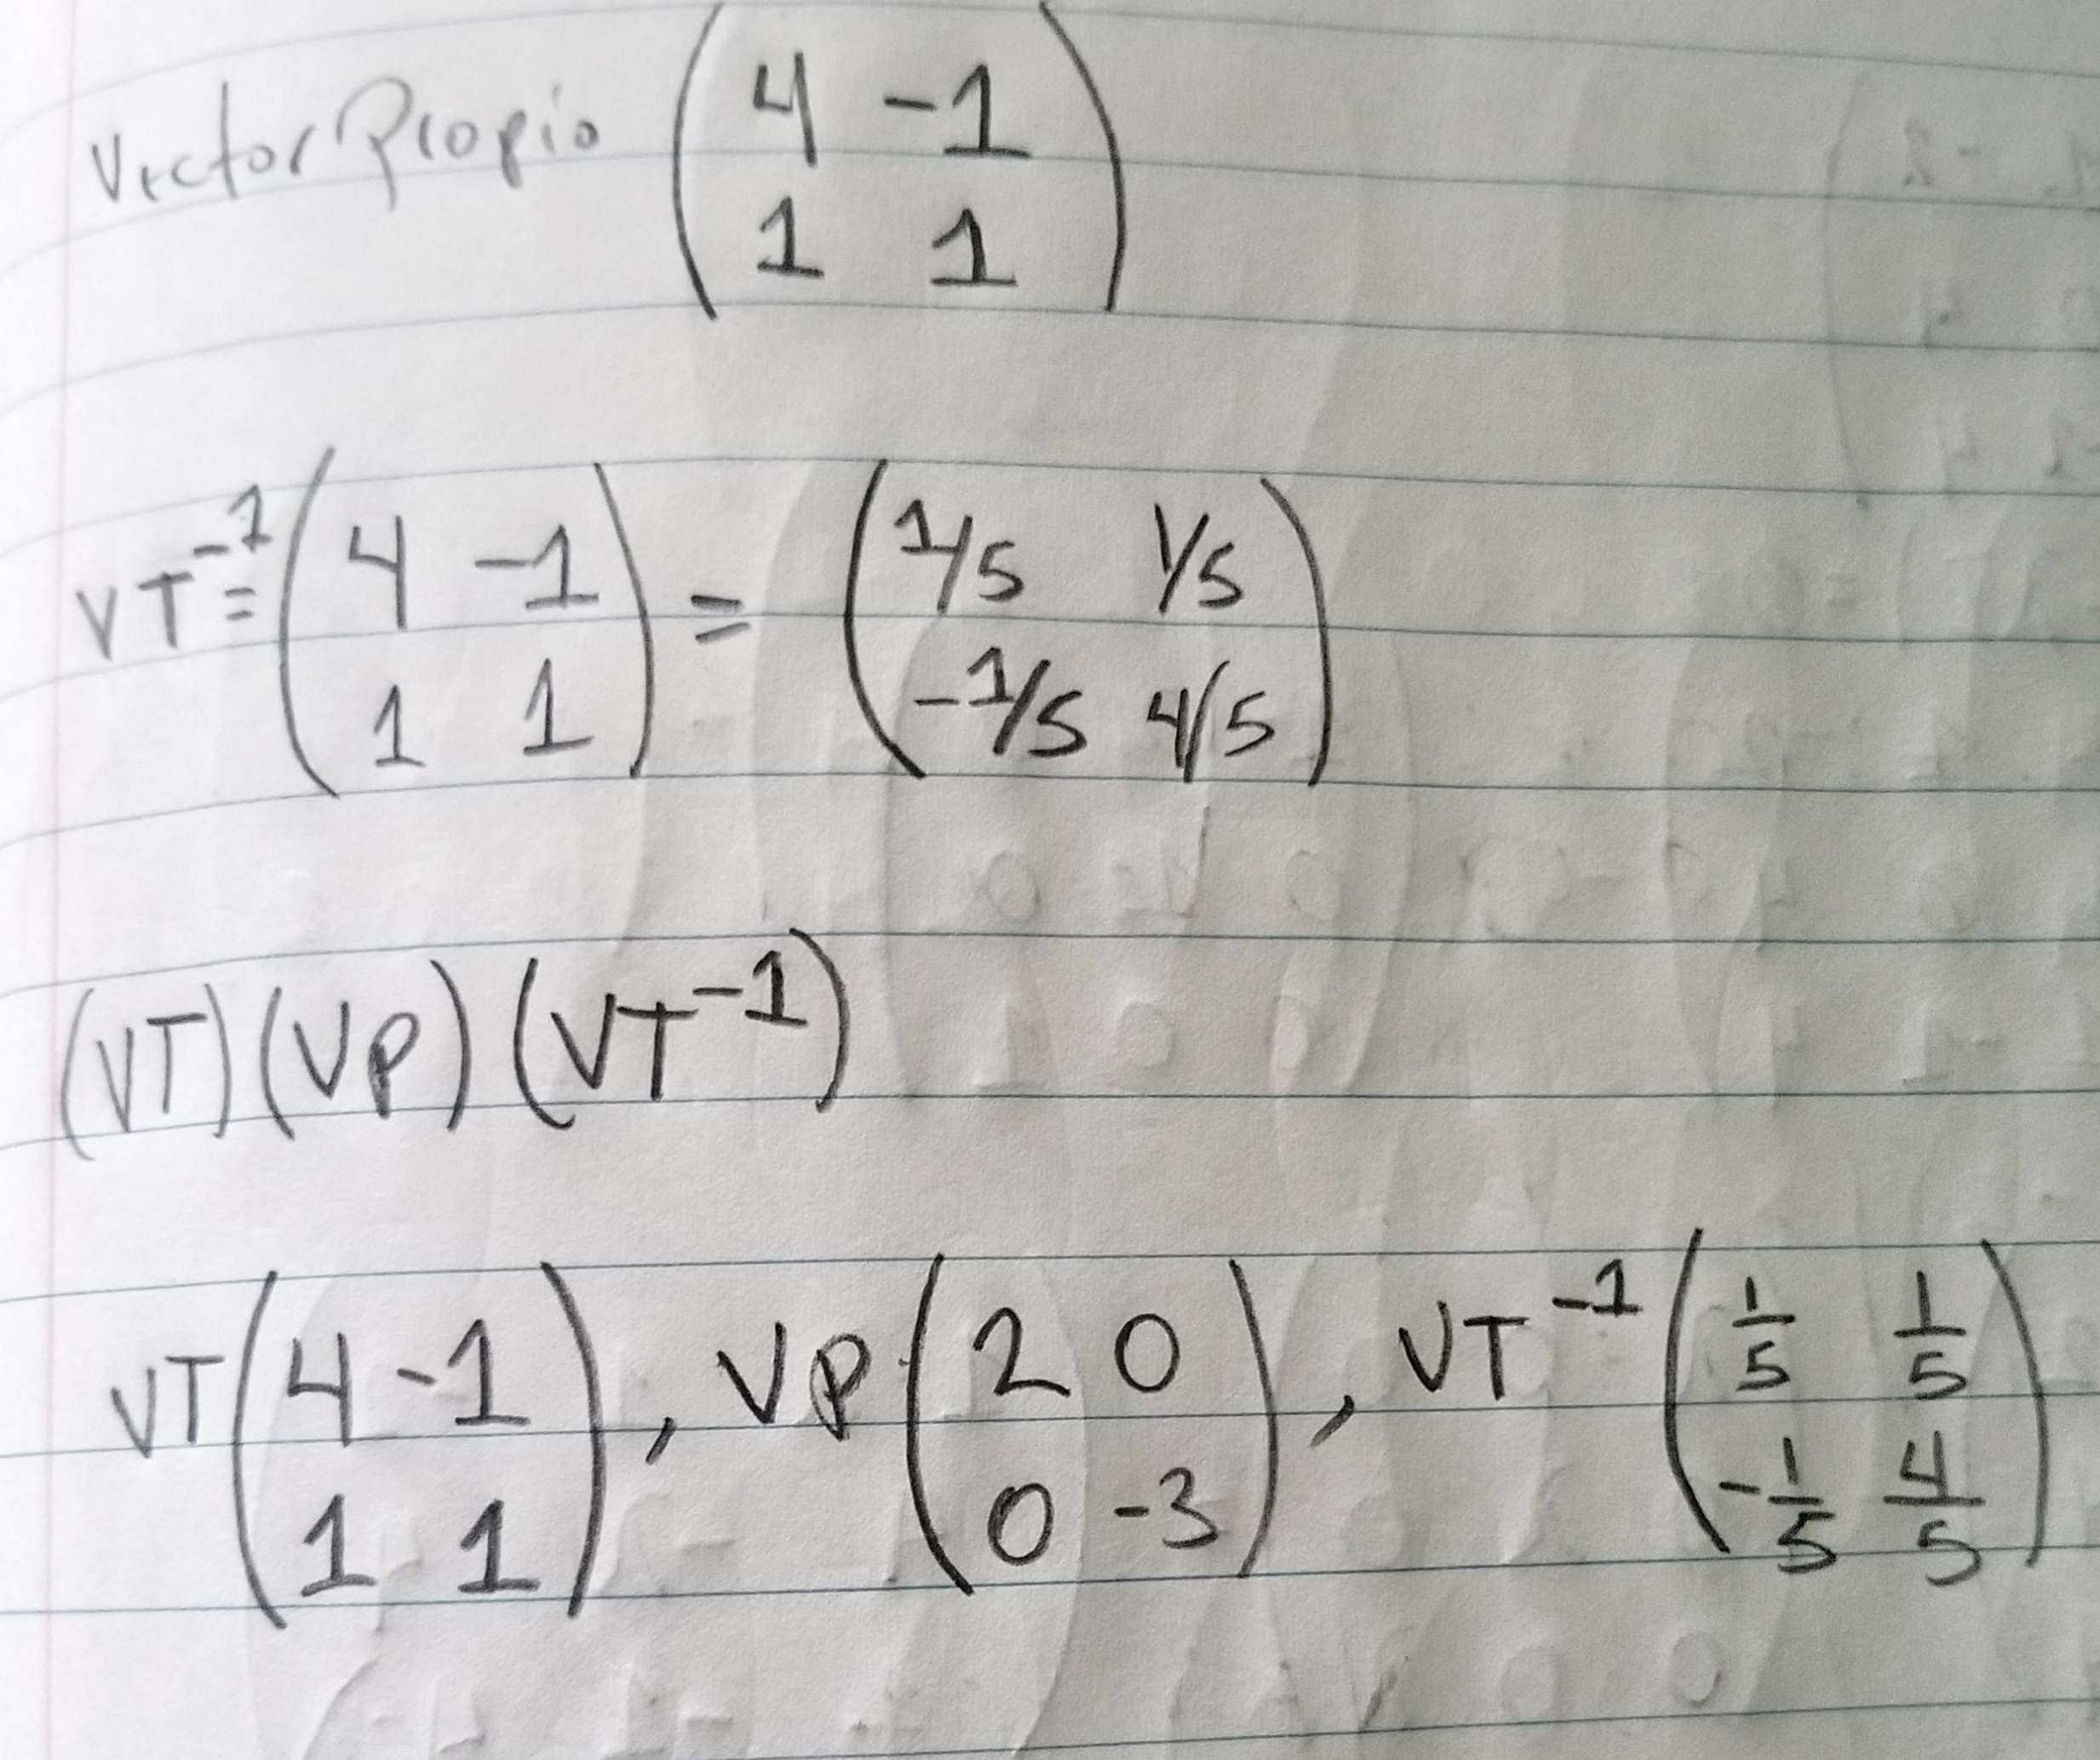 Vector Propio (4 -1
1 1)
VT⁻¹= (4 -1
1 1) = (1/5 1/5
-1/5 4/5)
(VT)(VP)(VT⁻¹)
VT (4 -1
1 1), VP (2 0
0 -3), VT⁻¹ (1/5 1/5
-1/5 4/5)